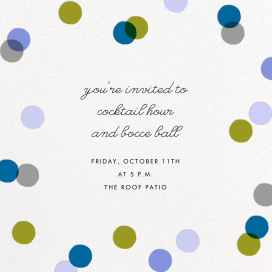 you're invited to
cocktail hour
and bocce ball
FRIDAY, OCTOBER 11TH
AT 5 P.M.
THE ROOF PATIO